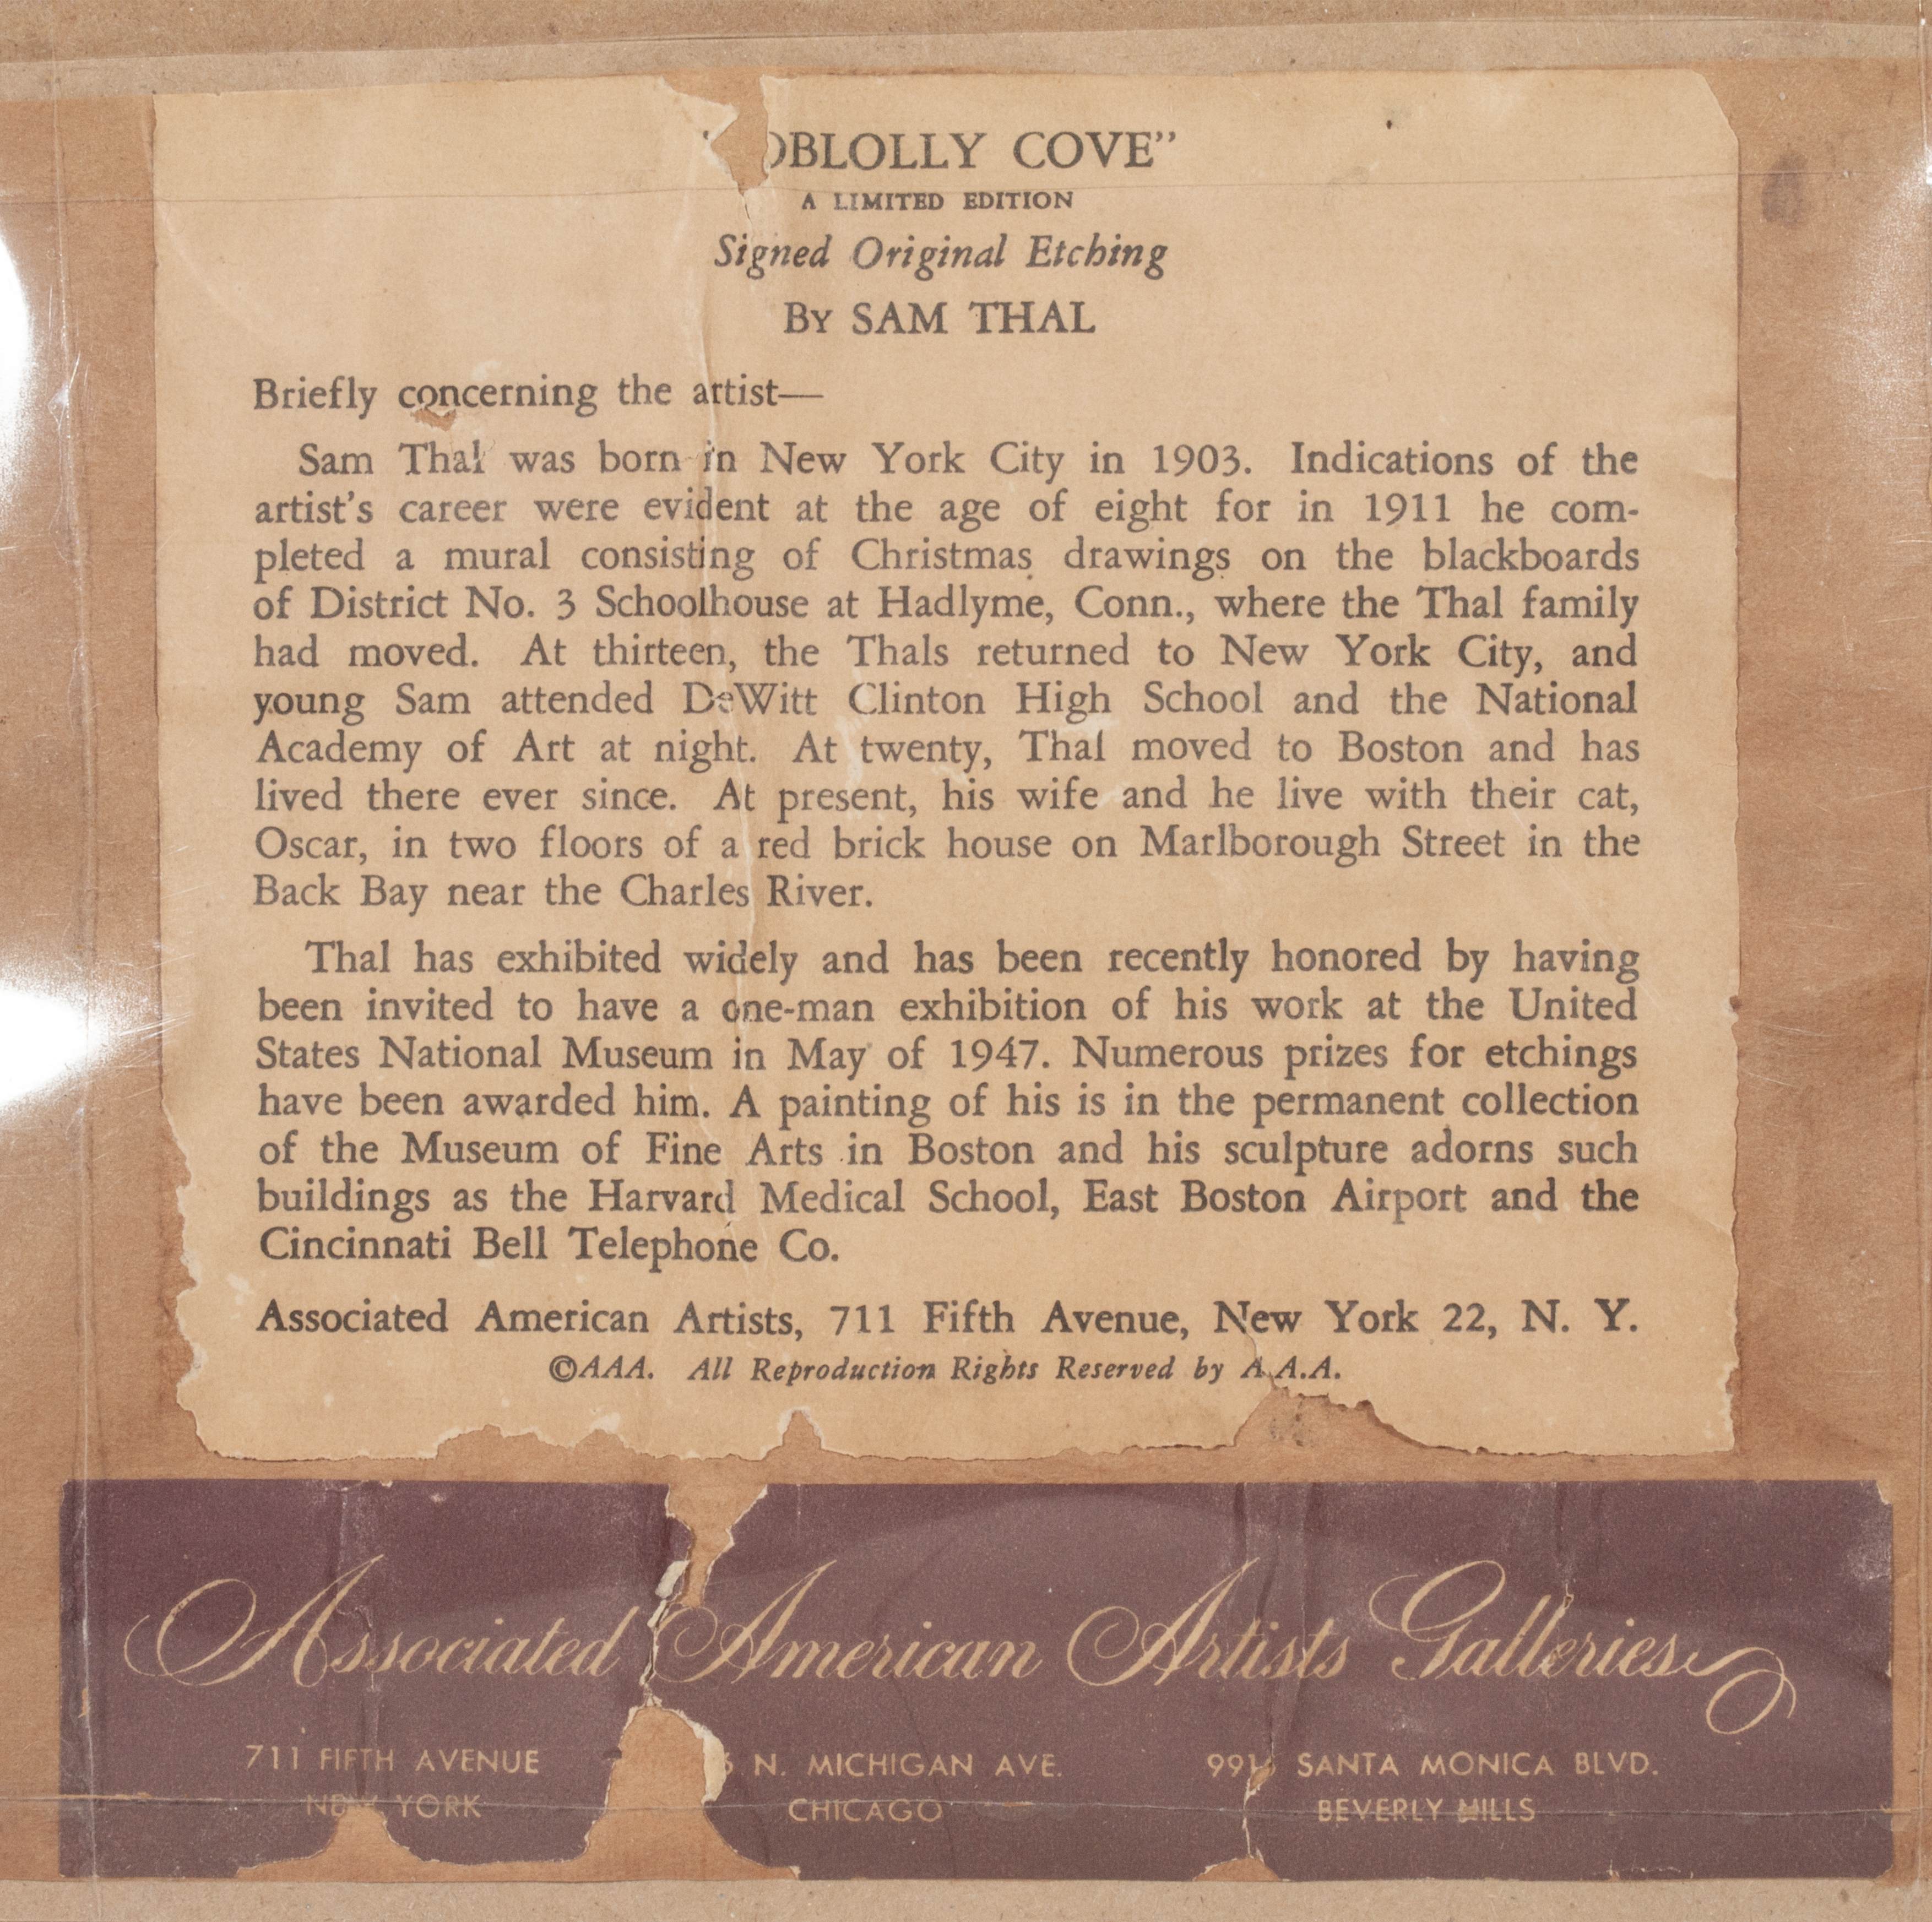 COVE”
A LIMITED EDITION
Signed Original Etching
By SAM THAL
Briefly concerning the artist—
Sam Thal was born in New York City in 1903. Indications of the
artist's career were evident at the age of eight for in 1911 he com-
pleted a mural consisting of Christmas drawings on the blackboards
of District No. 3 Schoolhouse at Hadlyme, Conn., where the Thal family
had moved. At thirteen, the Thals returned to New York City, and
young Sam attended DeWitt Clinton High School and the National
Academy of Art at night. At twenty, Thal moved to Boston and has
lived there ever since. At present, his wife and he live with their cat,
Oscar, in two floors of a red brick house on Marlborough Street in the
Back Bay near the Charles River.
Thal has exhibited widely and has been recently honored by having
been invited to have a one-man exhibition of his work at the United
States National Museum in May of 1947. Numerous prizes for etchings
have been awarded him. A painting of his is in the permanent collection
of the Museum of Fine Arts in Boston and his sculpture adorns such
buildings as the Harvard Medical School, East Boston Airport and the
Cincinnati Bell Telephone Co.
Associated American Artists, 711 Fifth Avenue, New York 22, N. Y.
©AAA. All Reproduction Rights Reserved by A.A.A.
Associated American Artists Galleries
711 FIFTH AVENUE
NEW YORK
N. MICHIGAN AVE.
CHICAGO
SANTA MONICA BLVD.
BEVERLY HILLS